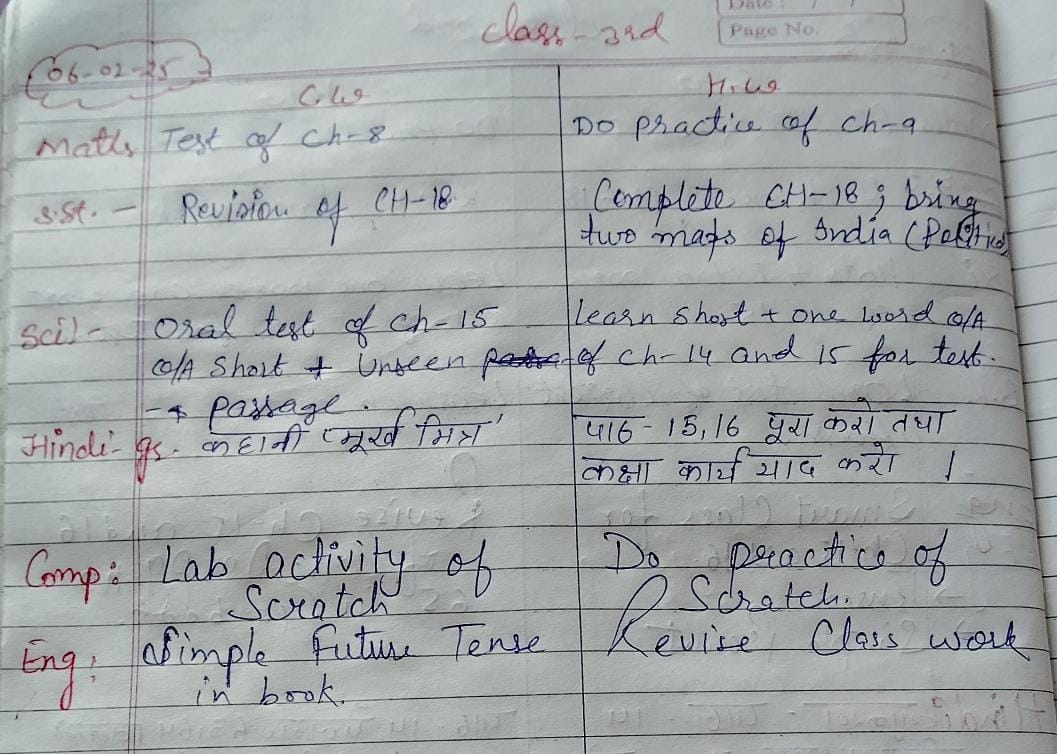 Date : / /
Page No.
Class - 3rd
06-02-25
C.W
H.W
Maths Test of Ch-8
Do practice of ch-9
S.St. - Revision of CH-18.
Complete CH-18 ; bring
two maps of India (Political)
Sci)- Oral test of ch-15
Learn short + one word Q/A
Q/A Short + Unseen
of ch-14 and 15 for test.
→ Passage.
Hindi- कहानी 'मूर्ख मित्र'
पाठ - 15,16 पूरा करो तथा
कक्षा कार्य याद करो ।
Comp: Lab activity of
Do practice of
Scratch
Scratch.
Eng: Simple Future Tense
Revise Class work
in book.